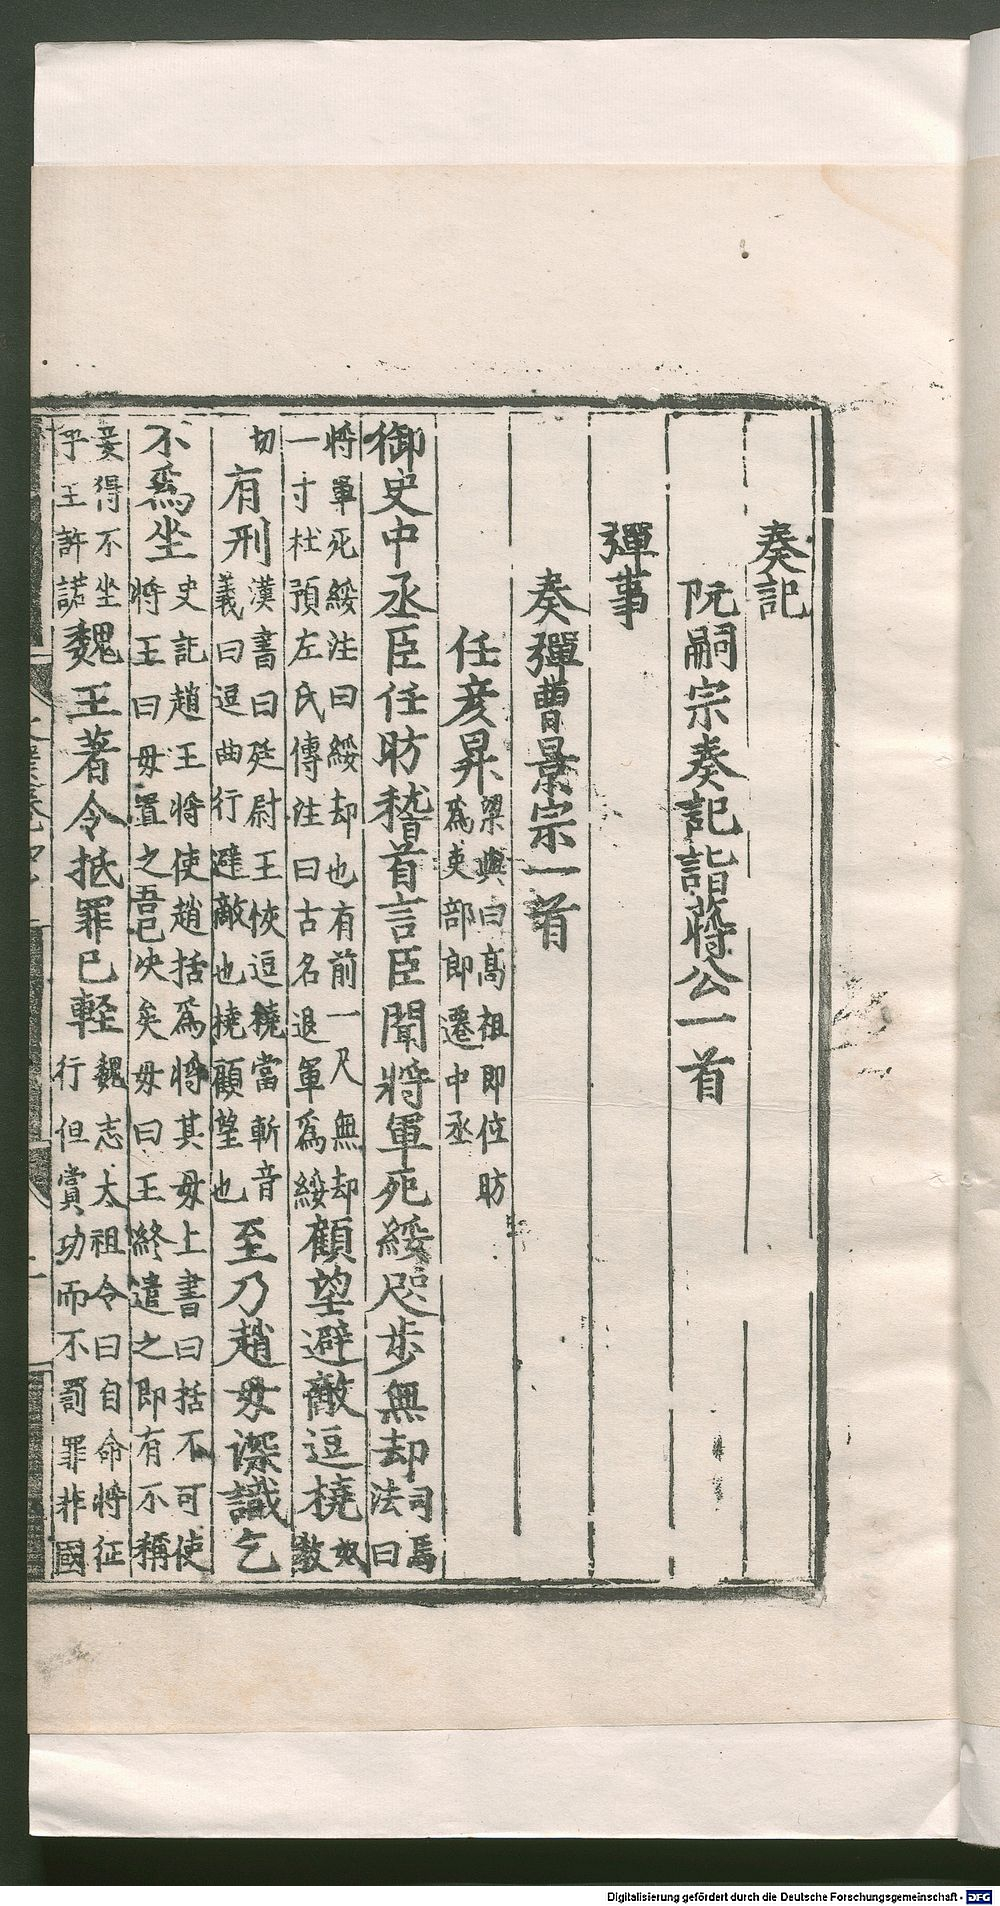 奏記
阮嗣宗奏記詣蔣公一首
彈事
奏彈曹景宗一首
任彦昇梁典曰高祖即位昉爲吏部郎遷中丞
御史中丞臣任昉稽首言臣聞將軍死綏咫步無却司馬法曰
將軍死綏注曰綏却也有前一尺無却一寸杜預左氏傳注曰古名退軍爲綏顧望避敵逗橈奴敎
切有刑漢書曰廷尉王恢逗橈當斬音義曰逗曲行避敵也橈顧望也至乃趙母深識乞
不爲坐史記趙王將使趙括爲將其母上書曰括不可使將王曰母置之吾已决矣母曰王終遣之即有不稱
妾得不坐乎王許諾魏王著令抵罪已輕魏志太祖令曰自命將征行但賞功而不罰罪非國
Digitalisierung gefördert durch die Deutsche Forschungsgemeinschaft - DFG